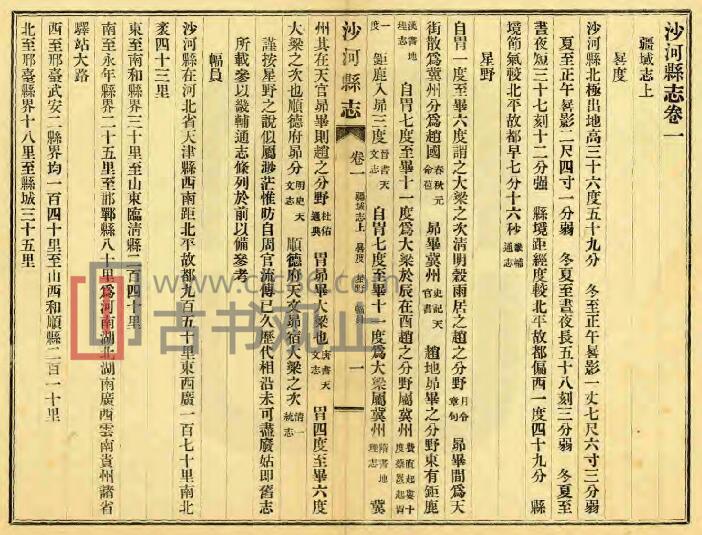 沙河縣志卷一
疆域志上
晷度
沙河縣北極出地高三十六度五十九分　冬至正午晷影一丈七尺六寸三分弱
夏至正午晷影二尺四寸一分弱　冬夏至晝夜長五十八刻三分弱　冬夏至
晝夜短三十七刻十二分强　縣境距經度較北平故都偏西一度四十九分　縣
境節氣較北平故都早七分十六秒畿輔通志
星野
自胃一度至畢六度謂之大梁之次清明穀雨居之趙之分野月令章句　昴畢間爲天
街散爲冀州分爲趙國春秋元命苞　昴畢冀州史記天官書　趙地昴畢之分野東有鉅鹿
漢書地理志　自胃七度至畢十一度爲大梁於辰在酉趙之分野屬冀州費直起婁十度蔡邕起胃一
度　鉅鹿入昴三度晉書天文志　自胃七度至畢十一度爲大梁屬冀州隋書地理志　冀
沙河縣志　卷一　疆域志上　晷度　星野　幅員　一
州其在天官昴畢則趙之分野杜佑通典　胃昴畢大梁也唐書天文志　胃四度至畢六度
大梁之次也順德府昴分明史天文志　順德府天文昴宿大梁之次清一統志
謹按星野之說似屬渺茫惟昉自周官流傳已久歷代相沿未可盡廢姑卽舊志
所載參以畿輔通志條列於前以備參考
幅員
沙河縣在河北省天津縣西南距北平故都九百五十里東西廣一百七十里南北
袤四十三里
東至南和縣界三十里至山東臨淸縣二百四十里
南至永年縣界二十五里至邯鄲縣八十里爲河南湖北湖南廣西雲南貴州諸省
驛站大路
西至邢臺武安二縣界均一百四十里至山西和順縣二百一十里
北至邢臺縣界十八里至縣城三十五里
www.gujis66.com
古书网止